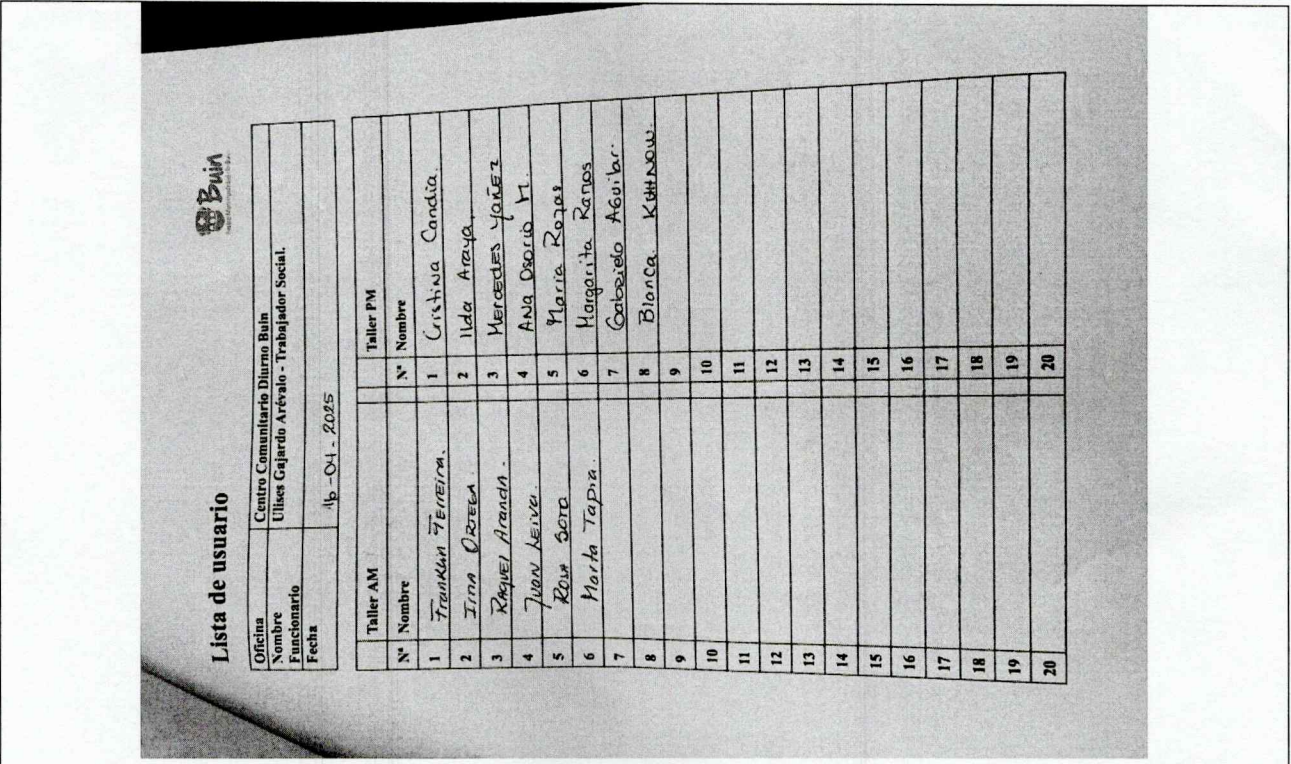 Lista de usuario
Buin
Oficina Centro Comunitario Diurno Buin
Nombre Funcionario Ulises Gajardo Arévalo - Trabajador Social.
Fecha 16-04-2025
Taller AM Taller PM
N° Nombre N° Nombre
1 Franklin Ferreira. 1 Cristina Candia.
2 Irma ORTEGA. 2 Ilda Araya.
3 Raquel Aranda. 3 Mercedes Yañez
4 Juan Leiva. 4 Ana Osorio M.
5 Rosa Soto 5 Maria Rozas
6 Marta Tapia. 6 Margarita Ramos
7 7 Gabrielo Aguilar.
8 8 Blanca KUHNOW.
9 9
10 10
11 11
12 12
13 13
14 14
15 15
16 16
17 17
18 18
19 19
20 20